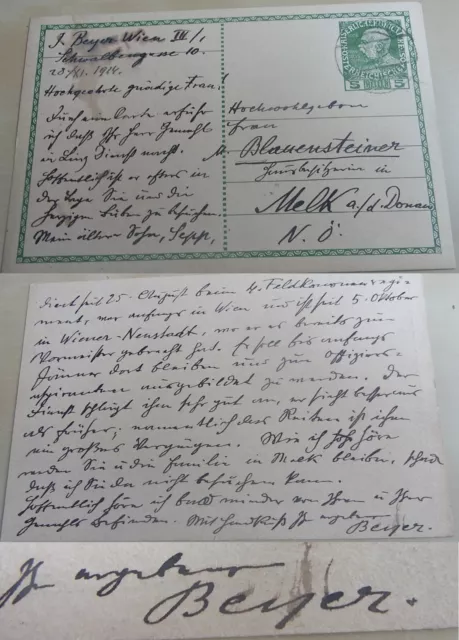 J. Beyer Wien III/1
Schwalbengasse 10.
28/XI. 1914.
Hochgeehrte gnädige Frau!
Durch eine Karte erfuhr
ich daß Ihr Herr Gemahl
in Linz Dienst macht.
Hoffentlich ist er öfters in
der Lage Sie und die
herzigen Lieben zu besuchen.
Mein älterer Sohn, Seppl,
5
Hochwohlgeboren
Frau
M. Blauensteiner
Hausbesitzerin in
Melk a./d. Donau
N. Ö.
dient seit 25. August beim 4. Feldkanonenregi-
ment, war anfangs in Wien und ist seit 5. Oktober
in Wiener-Neustadt, wo er es bereits zum
Vormeister gebracht hat. Er soll bis anfangs
Jänner dort bleiben und zum Offiziers-
aspiranten ausgebildet zu werden. Der
Dienst schlägt ihm sehr gut an, er sieht besser aus
als früher; namentlich das Reiten ist ihm
ein großes Vergnügen. Wie ich höre
werden Sie u die Familie in Melk bleiben, schade
daß ich Sie da nicht besuchen kann.
Hoffentlich höre ich bald wieder von Ihnen u Ihres
Gemahls Befinden. Mit Handkuß Ihr ergebener
Beyer.
Ihr ergebener
Beyer.